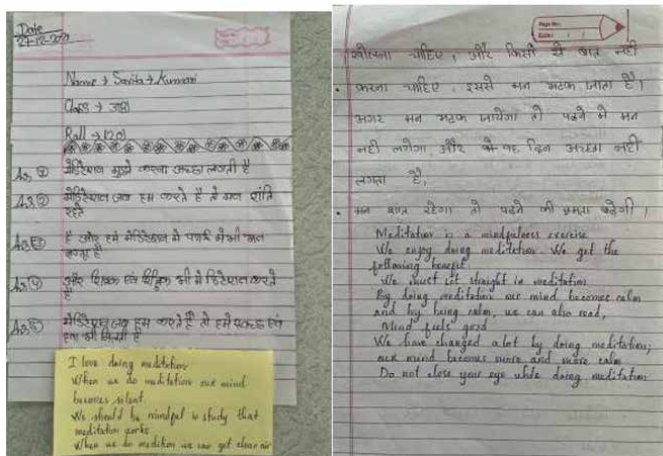 Date
27-12-2021
Name → Sarita → Kumari
Class → 7th
Roll → (20)
Ans ① मेडिटेशन मुझे करना अच्छा लगती है
Ans ② मेडिटेशन जब हम करते है तो मन शांति
रहते
Ans ③ है और हमे मेडिटेशन में पढ़ाई में भी मन
लगता है
Ans ④ और शिक्षक एवं शिक्षिक भी मेडिटेशन करते
है
Ans ⑤ मेडिटेशन जब हम करते है तो हमे
हवा भी मिलती है
I love doing meditation
When we do meditation our mind
becomes silent.
We should be mindful in study that
meditation works
When we do medition we can get clean air
Page No:
Date:
खोलना चाहिए, और किसी से बात नही
करना चाहिए, इससे मन भटक जाता है।
अगर मन भटक जायेगा तो पढ़ने मे मन
नही लगेगा और वह दिन अच्छा नही
लगता है,
मन शांत रहेगा तो पढ़ने की क्षमता बढ़ेगी।
Meditation is a mindfulness exercise
We enjoy doing meditation. We get the
following benefit.
We must sit straight in meditation
By doing meditation our mind becomes calm
and by being calm, we can also read,
Mind feels good
We have changed a lot by doing meditation;
our mind becomes more and more calm
Do not close your eye while doing meditation